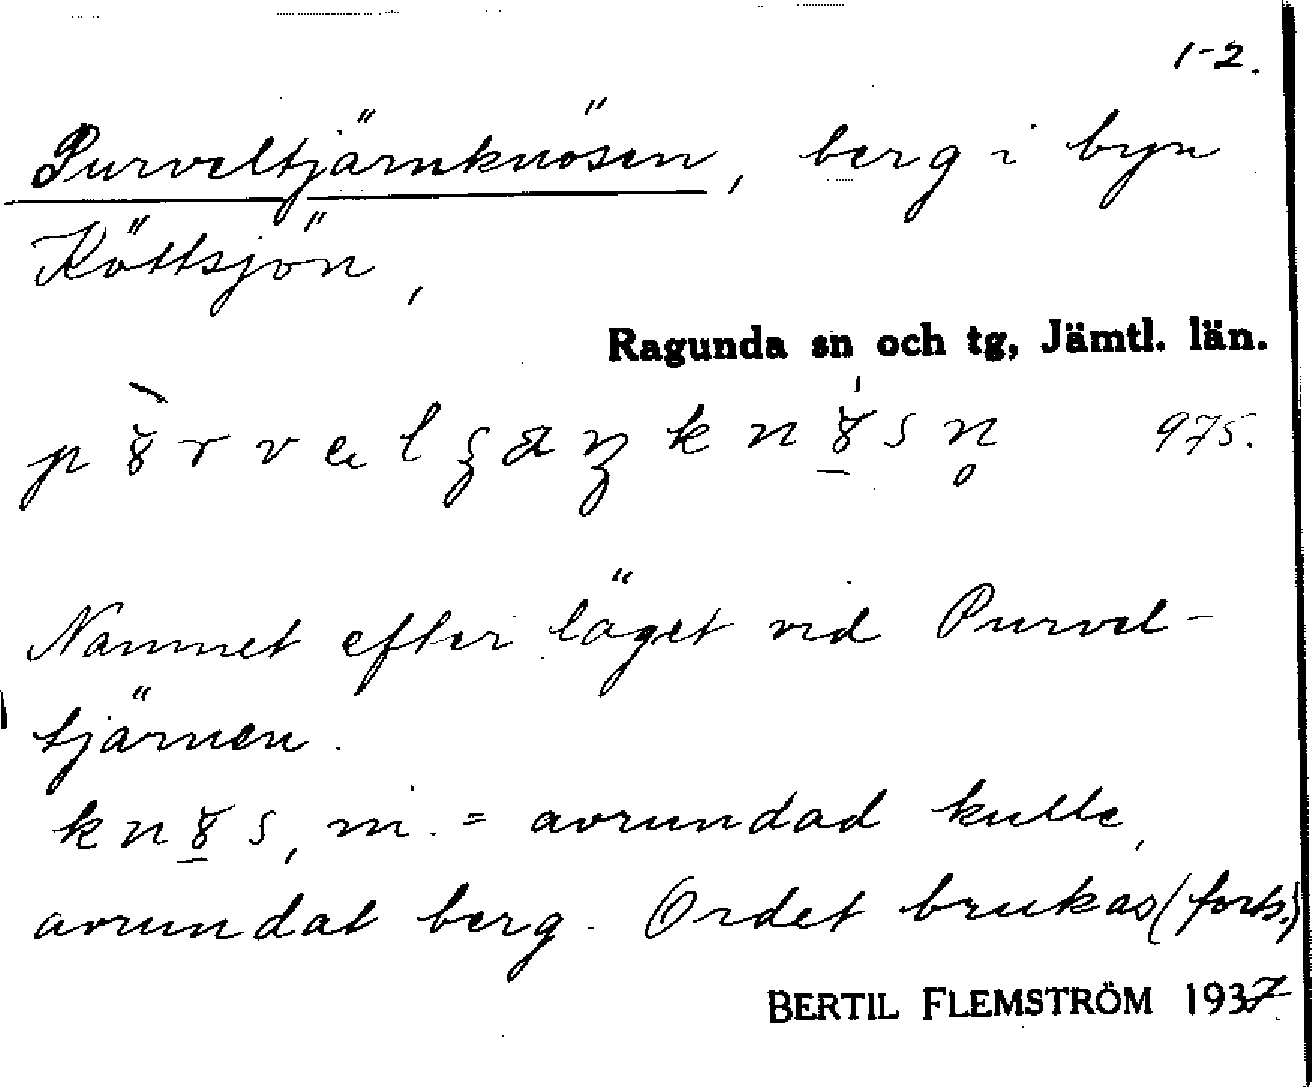 1-2.
Purveltjärnknösen, berg i byn
Köttsjön,
Ragunda sn och tg, Jämtl. län.
975.
Namnet efter läget vid Purvel-
tjärnen.
m. = avrundad kulle,
avrundat berg. Ordet brukas (forts.)
BERTIL FLEMSTRÖM 1937